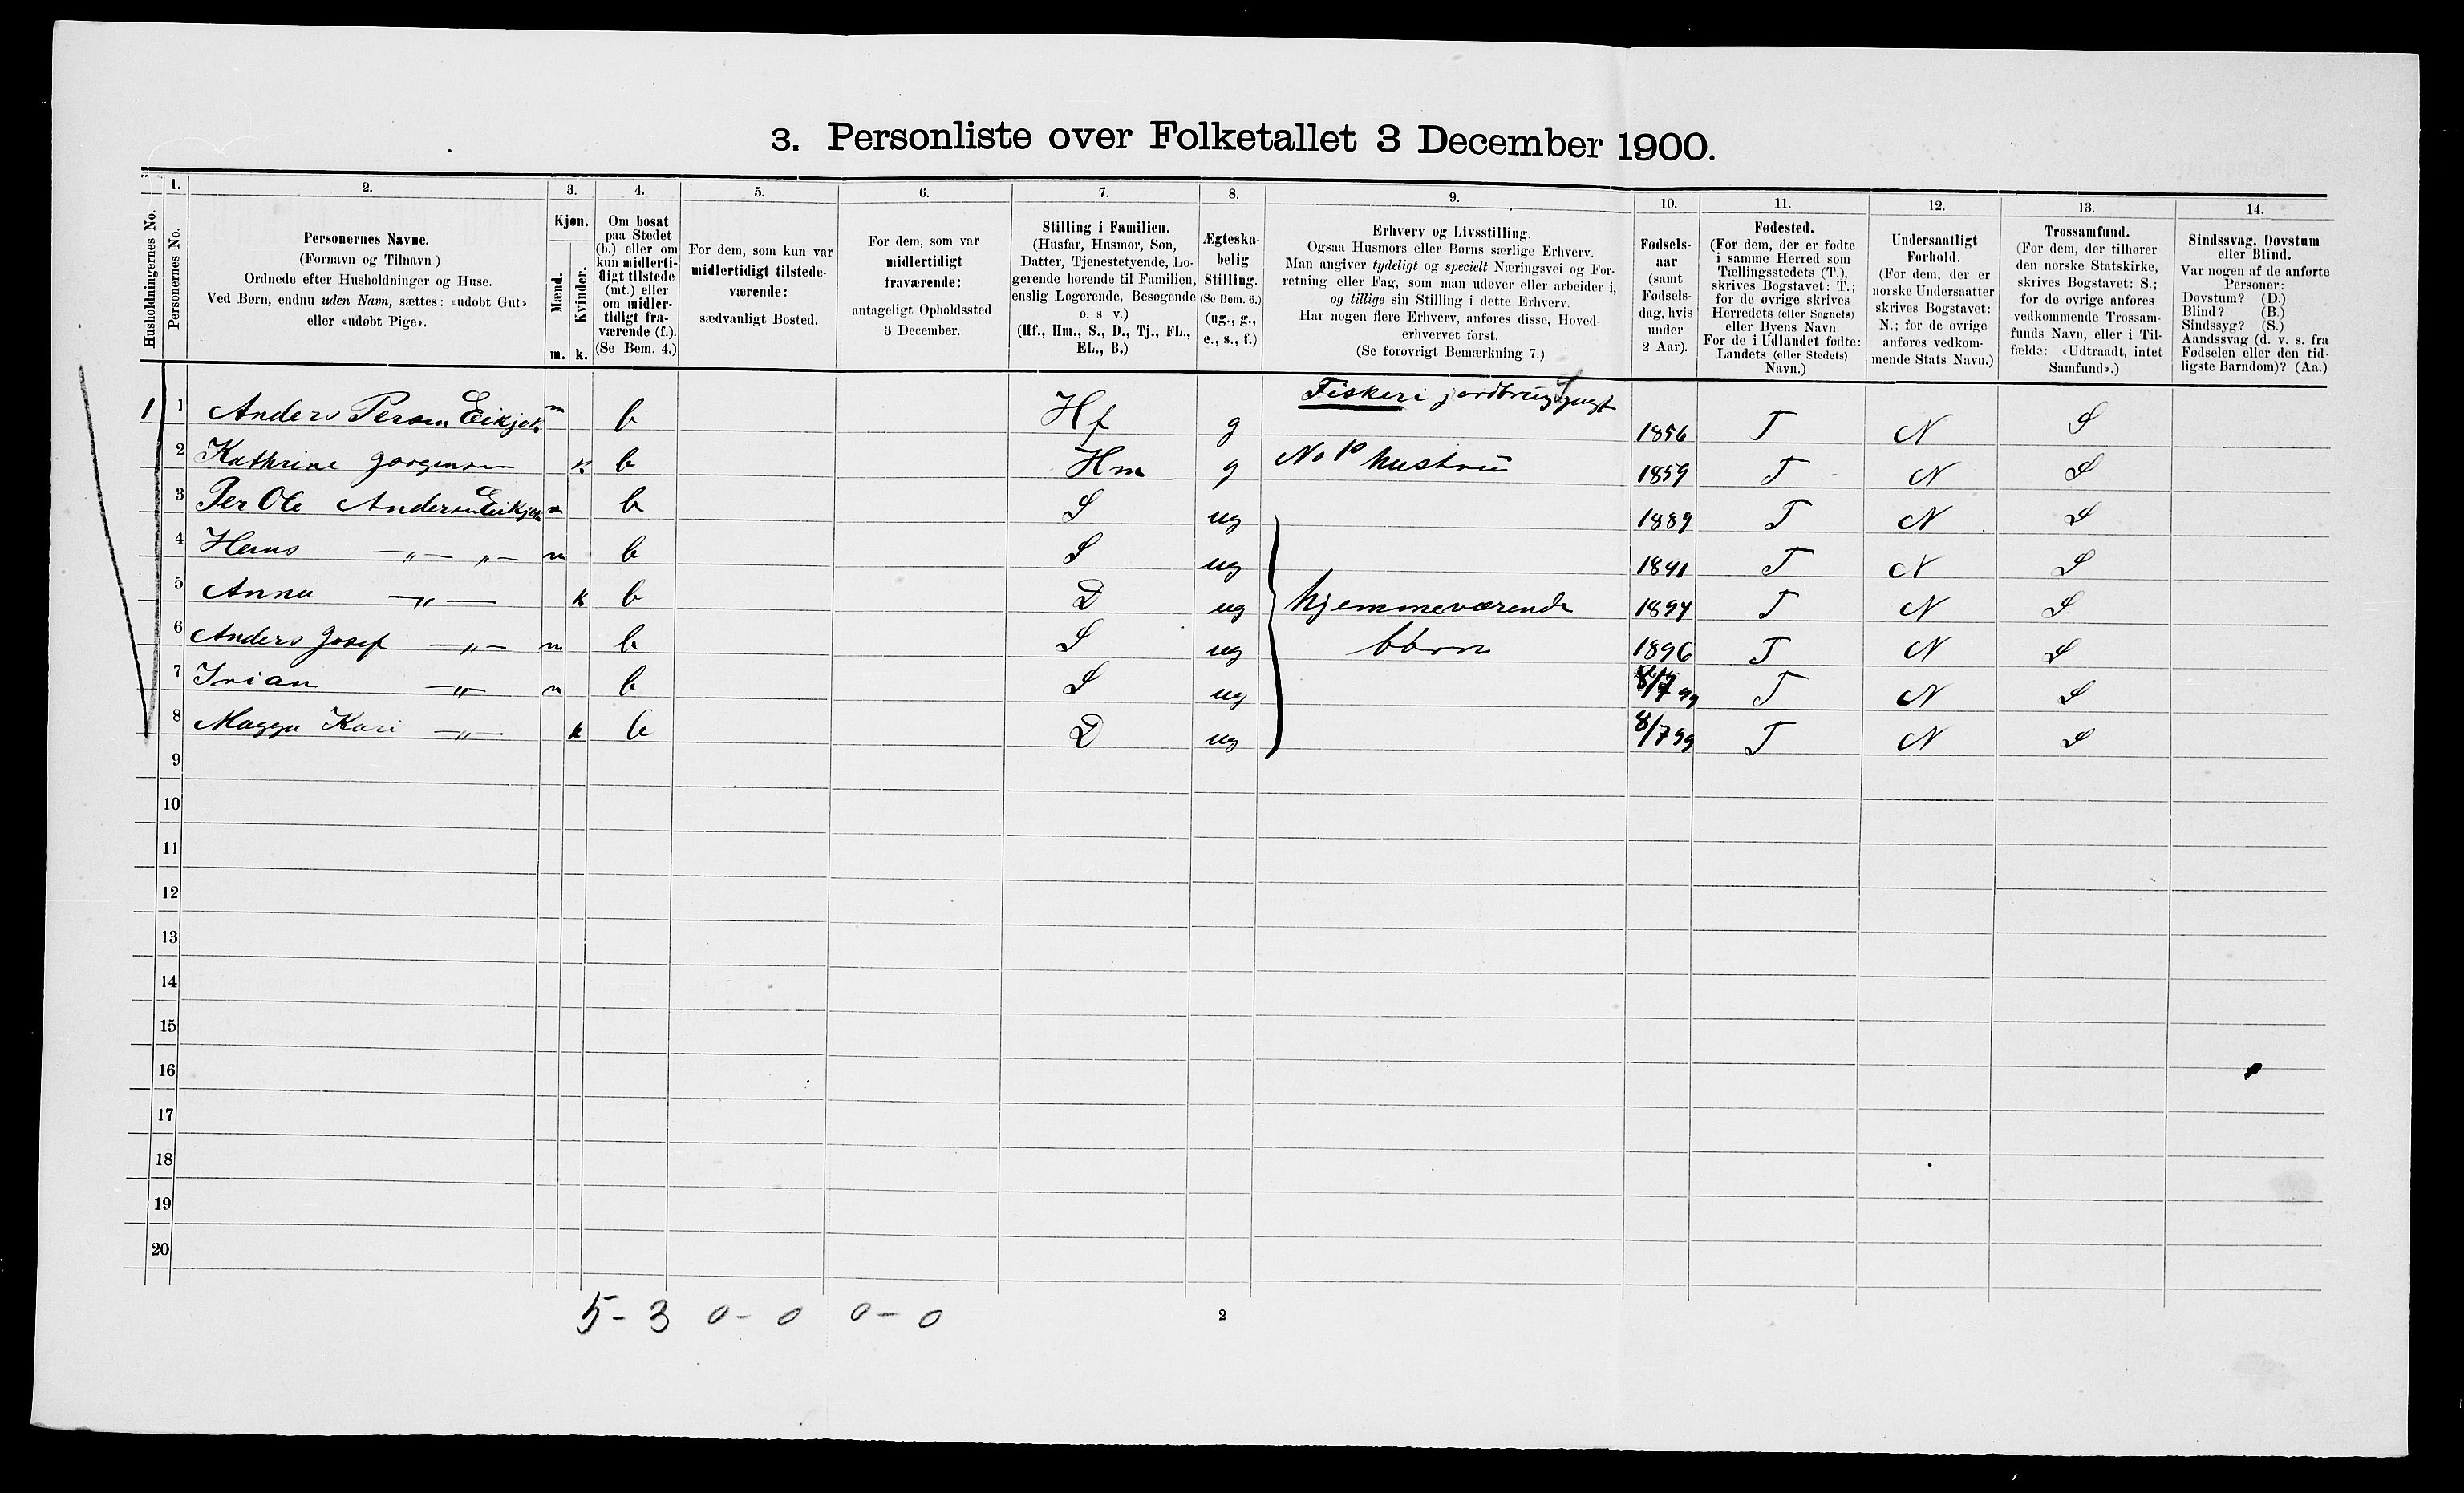 3. Personliste over Folketallet 3 December 1900.
Husholdningernes No.
1.
Personernes No.
2.
Personernes Navne.
(Fornavn og Tilnavn)
Ordnede efter Husholdninger og Huse.
Ved Børn, endnu uden Navn, sættes: «udøbt Gut»
eller «udøbt Pige».
3.
Kjøn.
Mænd.
Kvinder.
m. k.
4.
Om bosat
paa Stedet
(b.) eller om
kun midlerti-
digt tilstede
(mt.) eller
om midler-
tidigt fra-
værende (f.).
(Se Bem. 4.)
5.
For dem, som kun var
midlertidigt tilstede-
værende:
sædvanligt Bosted.
6.
For dem, som var
midlertidigt
fraværende:
antageligt Opholdssted
3 December.
7.
Stilling i Familien.
(Husfar, Husmor, Søn,
Datter, Tjenestetyende, Lo-
gerende hørende til Familien,
enslig Logerende, Besøgende
o. s v.)
(Hf., Hm., S., D., Tj., FL.,
EL., B.)
8.
Ægteska-
belig
Stilling.
(Se Bem. 6.)
(ug., g.,
e., s., f.)
9.
Erhverv og Livsstilling.
Ogsaa Husmors eller Børns særlige Erhverv.
Man angiver tydeligt og specielt Næringsvei og For-
retning eller Fag, som man udøver eller arbeider i,
og tillige sin Stilling i dette Erhverv.
Har nogen flere Erhverv, anføres disse, Hoved-
erhvervet først.
(Se forøvrigt Bemærkning 7.)
10.
Fødsels-
aar
(samt
Fødsels-
dag, hvis
under
2 Aar).
11.
Fødested.
(For dem, der er fødte
i samme Herred som
Tællingsstedets (T.),
skrives Bogstavet: T.;
for de øvrige skrives
Herredets (eller Sognets)
eller Byens Navn
For de i Udlandet fødte:
Landets (eller Stedets)
Navn.)
12.
Undersaatligt
Forhold.
(For dem, der er
norske Undersaatter
skrives Bogstavet:
N.; for de øvrige
anføres vedkom-
mende Stats Navn.)
13.
Trossamfund.
(For dem, der tilhører
den norske Statskirke,
skrives Bogstavet: S.;
for de øvrige anføres
vedkommende Trossam-
funds Navn, eller i Til-
fælde: «Udtraadt, intet
Samfund».)
14.
Sindssvag, Døvstum
eller Blind.
Var nogen af de anførte
Personer:
Døvstum? (D.)
Blind? (B.)
Sindssyg? (S.)
Aandssvag (d. v. s. fra
Fødselen eller den tid-
ligste Barndom)? (Aa.)
1 1 Anders Persen Eikjok m b Hf g Fiskeri jordbrug 1856 T N S
2 Kathrine Jørgensen k b Hm g No 1s hustru 1859 T N S
3 Per Ole Andersen Eikjok m b S ug 1889 T N S
4 Hans —„— „— m b S ug 1891 T N S
5 Anna —„— k b D ug hjemmeværende 1894 T N S
6 Anders Josef —„— m b S ug børn 1896 T N S
7 —„— m b S ug 8/7 99 T N S
8 Magga Kari —„— k b D ug 8/7 99 T N S
9
10
11
12
13
14
15
16
17
18
19
20
5 - 3 0 - 0 0 - 0
2